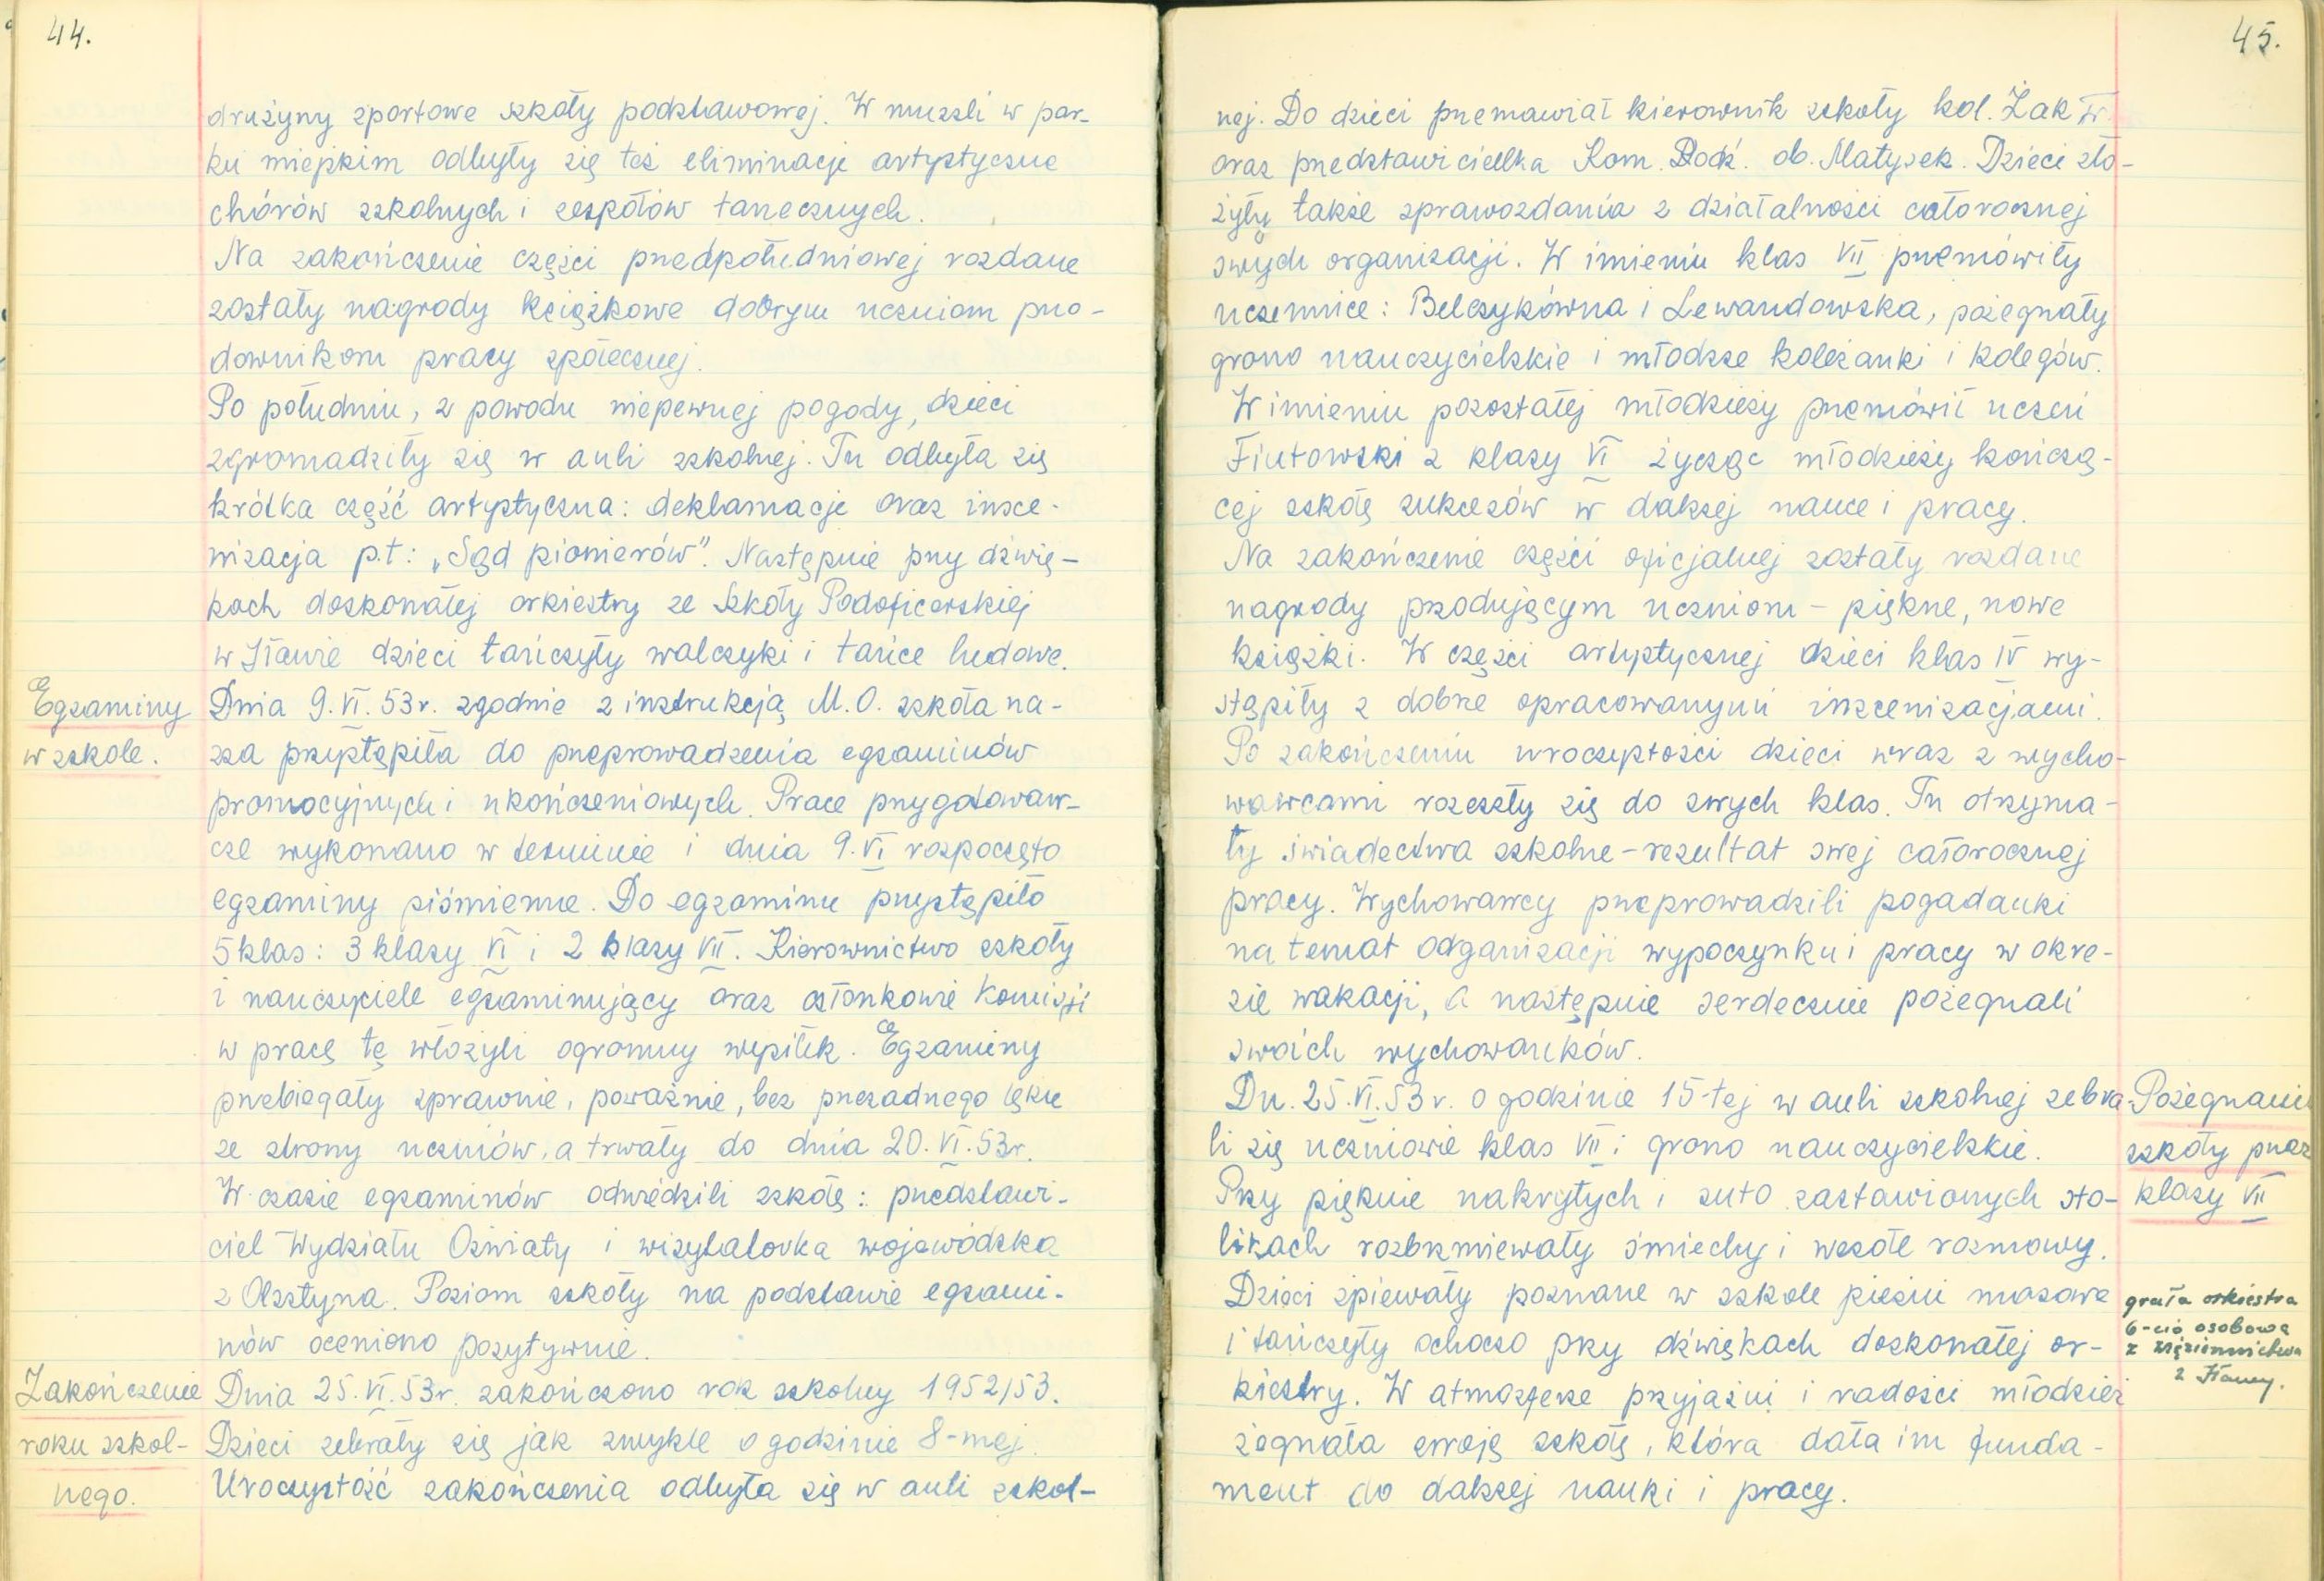 44.
drużyny sportowe szkoły podstawowej. W muszli w par-
ku miejskim odbyły się też eliminacje artystyczne
chórów szkolnych i zespołów tanecznych.
Na zakończenie części przedpołudniowej rozdane
zostały nagrody książkowe dobrym uczniom przo-
downikom pracy społecznej.
Po południu, z powodu niepewnej pogody, dzieci
zgromadziły się w auli szkolnej. Tu odbyła się
krótka część artystyczna: deklamacje oraz insce-
nizacja p.t: „Sąd pionierów”. Następnie przy dźwię-
kach doskonałej orkiestry ze Szkoły Podoficerskiej
w Iławie dzieci tańczyły walczyki i tańce ludowe.
Egzaminy
w szkole.
Dnia 9.VI.53r. zgodnie z instrukcją M.O. szkoła na-
sza przystąpiła do przeprowadzenia egzaminów
promocyjnych i ukończeniowych. Prace przygotowaw-
cze wykonano w terminie i dnia 9.VI rozpoczęto
egzaminy piśmienne. Do egzaminu przystąpiło
5 klas: 3 klasy VI i 2 klasy VII. Kierownictwo szkoły
i nauczyciele egzaminujący oraz członkowie Komisji
w pracę tę włożyli ogromny wysiłek. Egzaminy
przebiegały sprawnie, poważnie, bez przesadnego lęku
ze strony uczniów, a trwały do dnia 20.VI.53r.
W czasie egzaminów odwiedzili szkołę: przedstawi-
ciel Wydziału Oświaty i wizytatorka wojewódzka
z Olsztyna. Poziom szkoły na podstawie egzami-
nów oceniono pozytywnie.
Zakończenie
roku szkol-
nego.
Dnia 25.VI.53r. zakończono rok szkolny 1952/53.
Dzieci zebrały się jak zwykle o godzinie 8-mej.
Uroczystość zakończenia odbyła się w auli szkol-
45.
nej. Do dzieci przemawiał kierownik szkoły kol. Żak Fr.
oraz przedstawicielka Kom. Rodź. ob. Matysek. Dzieci zło-
żyły także sprawozdania z działalności całorocznej
swych organizacji. W imieniu klas VII przemówiły
uczennice: Belczykówna i Lewandowska, pożegnały
grono nauczycielskie i młodsze koleżanki i kolegów.
W imieniu pozostałej młodzieży przemówił uczeń
Fiutowski z klasy VI życząc młodzieży kończą-
cej szkołę sukcesów w dalszej nauce i pracy.
Na zakończenie części oficjalnej zostały rozdane
nagrody przodującym uczniom – piękne, nowe
książki. W części artystycznej dzieci klas IV wy-
stąpiły z dobrze opracowanymi inscenizacjami.
Po zakończeniu uroczystości dzieci wraz z wycho-
wawcami rozeszły się do swych klas. Tu otrzyma-
ły świadectwa szkolne – rezultat swej całorocznej
pracy. Wychowawcy przeprowadzili pogadanki
na temat odganizacji wypoczynku i pracy w okre-
sie wakacji, a następnie serdecznie pożegnali
swoich wychowanków.
Dn. 25.VI.53r. o godzinie 15-tej w auli szkolnej zebra-
li się uczniowie klas VII i grono nauczycielskie.
Przy pięknie nakrytych i suto zastawionych sto-
likach rozbrzmiewały śmiechy i wesołe rozmowy.
Dzieci śpiewały poznane w szkole pieśni masowe
i tańczyły ochoczo przy dźwiękach doskonałej or-
kiestry. W atmosferze przyjaźni i radości młodzież
żegnała swoją szkołę, która dała im funda-
ment do dalszej nauki i pracy.
Pożegnanie
szkoły przez
klasy VII
grała orkiestra
6-cio osobowa
z więziennictwa
z Iławy.